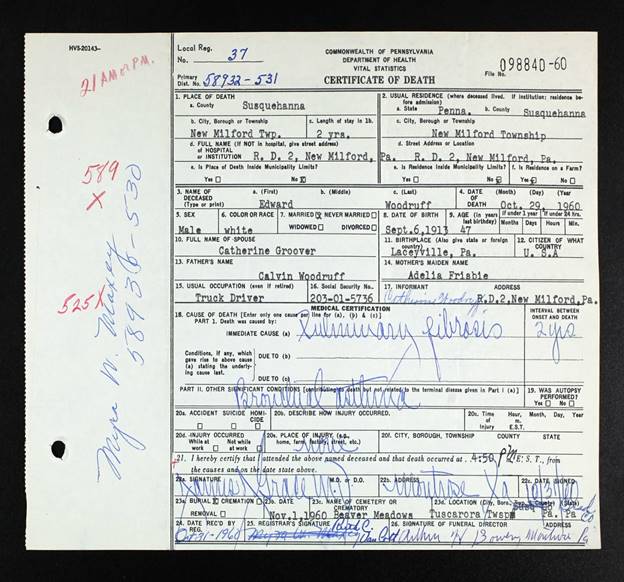 HVS-20143-
Local Reg. No. 37
COMMONWEALTH OF PENNSYLVANIA
DEPARTMENT OF HEALTH
VITAL STATISTICS
Primary Dist. No. 58932-531
CERTIFICATE OF DEATH
File No. 098840-60
21 AM or P.M.
589
X
525X
Myra W. Maxey
58936-530
1. PLACE OF DEATH
a. County Susquehanna
2. USUAL RESIDENCE (where deceased lived. If institution: residence before admission)
a. State Penna. b. County Susquehanna
b. City, Borough or Township New Milford Twp.
c. Length of stay in 1b. 2 yrs.
c. City, Borough or Township New Milford Township
d. FULL NAME (If NOT in hospital, give street address) OF HOSPITAL OR INSTITUTION R. D. 2, New Milford, Pa.
d. Street Address or Location R. D. 2, New Milford, Pa.
e. Is Place of Death Inside Municipality Limits? Yes No
e. Is Residence Inside Municipality Limits? Yes No
f. Is Residence on a Farm? Yes No
3. NAME OF DECEASED (Type or print) a. (First) Edward b. (Middle) c. (Last) Woodruff
4. DATE OF DEATH (Month) (Day) (Year) Oct. 29, 1960
5. SEX Male
6. COLOR OR RACE white
7. MARRIED NEVER MARRIED WIDOWED DIVORCED
8. DATE OF BIRTH Sept.6,1913
9. AGE (In years last birthday) 47
If under 1 year Months Days
If under 24 hrs. Hours Min.
10. FULL NAME OF SPOUSE Catherine Groover
11. BIRTHPLACE (Also give state or foreign country) Laceyville, Pa.
12. CITIZEN OF WHAT COUNTRY U. S A
13. FATHER'S NAME Calvin Woodruff
14. MOTHER'S MAIDEN NAME Adelia Frisbie
15. USUAL OCCUPATION (even if retired) Truck Driver
16. Social Security No. 203-01-5736
17. INFORMANT Catherine Woodruff ADDRESS R.D.2,New Milford,Pa.
MEDICAL CERTIFICATION
18. CAUSE OF DEATH [Enter only one cause per line for (a), (b) & (c)]
PART 1. Death was caused by:
IMMEDIATE CAUSE (a) Pulmonary fibrosis
INTERVAL BETWEEN ONSET AND DEATH 2 yrs
Conditions, if any, which gave rise to above cause (a) stating the underlying cause last.
DUE TO (b)
DUE TO (c)
PART II. OTHER SIGNIFICANT CONDITIONS (contributing to death but not related to the terminal disease given in Part I (a)
Bronchial asthma
19. WAS AUTOPSY PERFORMED? Yes No
20a. ACCIDENT SUICIDE HOMICIDE
20b. DESCRIBE HOW INJURY OCCURRED.
20c. Time of Injury Hour, m. E.S.T. Month Day Year
20d. INJURY OCCURRED While at work Not while at work
20e. PLACE OF INJURY (e.g., home, farm, factory, street, etc.)
20f. CITY, BOROUGH, TOWNSHIP COUNTY STATE
21. I hereby certify that I attended the above named deceased and that death occurred at 4:50 P M E. S. T., from the causes and on the date stated above.
22a. SIGNATURE M.D. or D.O.
22b. ADDRESS Montrose Pa
22c. DATE SIGNED
23a. BURIAL CREMATION REMOVAL
23b. DATE Nov.1,1960
23c. NAME OF CEMETERY OR CREMATORY Beaver Meadows
23d. LOCATION (City, Boro, Twp., County) (State) Tuscarora Twsp Pa.
24. DATE REC'D BY REG. Oct 31-1960
25. REGISTRAR'S SIGNATURE Myra W. Maxey
26. SIGNATURE OF FUNERAL DIRECTOR ADDRESS
Arthur Bowen, Montrose Pa